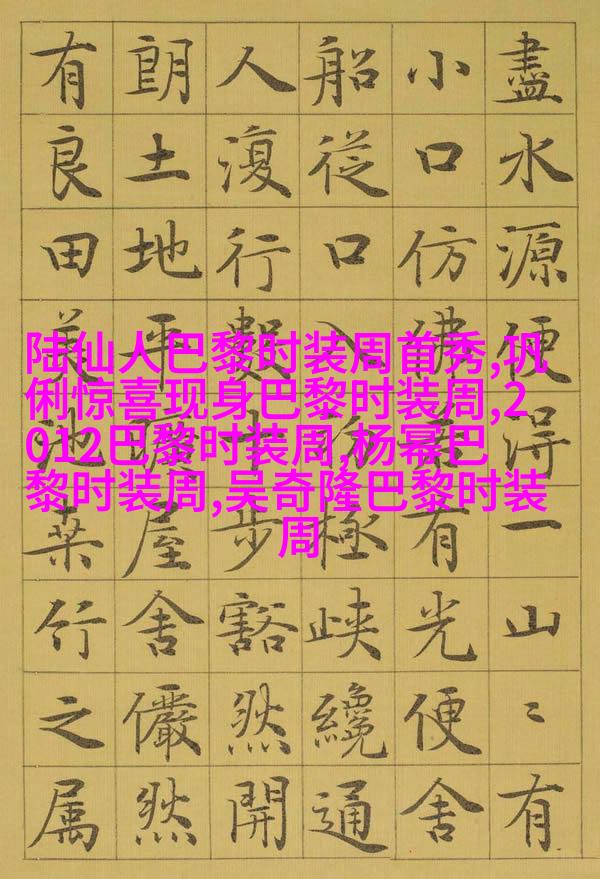 陆仙人巴黎时装周首秀,巩
俐惊喜现身巴黎时装周,2
012巴黎时装周,杨幂巴
黎时装周,吴奇隆巴黎时装
周
盡水源便得一山〻有
小口仿佛若有光便舍
船從口入初極峽纔通
人復行數十步豁然開
朗土地平曠屋舍儼然
有良田美池桑竹之属